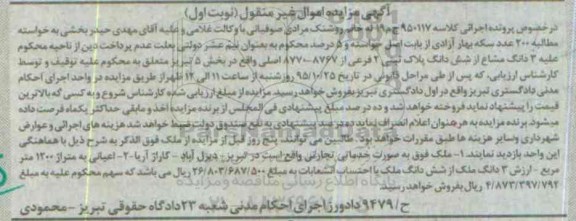 آگهی مزایده اموال غیر منقول (نوبت اول)
در خصوص پرونده اجرائی کلاسه ۹۵۰۱۱۷ ج ۱۹ له خانم روشنک مرادی صوفیانی با وکالت غلامی و علیه آقای مهدی حیدر بخشی به خواسته
مطالبه ۲۰۰ عدد سکه بهار آزادی از بابت اصل خواسته و ۵ درصد محکوم به بعنوان نیم عشر دولتی بعلت عدم پرداخت دین از ناحیه محکوم
علیه ۳ دانگ مشاع از شش دانگ پلاک ثبتی ۲ فرعی از ۸۷۶۷-۸۷۷۰ اصلی واقع در بخش ۵ تبریز متعلق به محکوم علیه توقیف و توسط
کارشناس ارزیابی، که پس از طی مراحل قانونی در تاریخ ۹۵/۱۰/۲۵ روز شنبه از ساعت ۱۱ الی ۱۲ ظهر از طریق مزایده در واحد اجرای احکام
مدنی دادگستری تبریز واقع در اول دادگستری تبریز بفروش خواهد رسید. مزایده از مبلغ ارزیابی شده کارشناس شروع و به کسی که بالاترین
قیمت را پیشنهاد نماید فروخته خواهد شد و ده در صد مبلغ پیشنهادی فی المجلس از برنده مزایده اخذ و مابقی حداکثر یکماه فرصت داده
میشود. برنده مزایده به هر عنوان اعلام انصراف نماید ده درصد پیشنهادی به نفع صندوق دولت ضبط خواهد شد هزینه های اجرائی و عوارض
شهرداری و سایر هزینه ها طبق مقررات خواهد بود. طالبین می توانند پنج روز قبل از مزایده از ملک فوق الذکر به شرح ذیل با هماهنگی
این واحد بازدید نمایند. ۱- ملک فوق به صورت خدماتی تجارتی واقع است در تبریز- دیزل آباد - گاراژ آریا ۲- اعیانی به متراژ ۱۲۰۰ متر
مربع - ارزش ۳ دانگ ملک از شش دانگ ملک با احتساب انشعابات به مبلغ ۲۶/۸۰۳/۶۸۷/۵۰۰ ریال می باشد که سهم محکوم علیه به مبلغ
۴/۸۷۳/۳۹۷/۷۹۲ ریال بفروش خواهد رسید.
ح/۹۴۷۹ دادورز اجرای احکام مدنی شعبه ۲۳ دادگاه حقوقی تبریز - محمودی